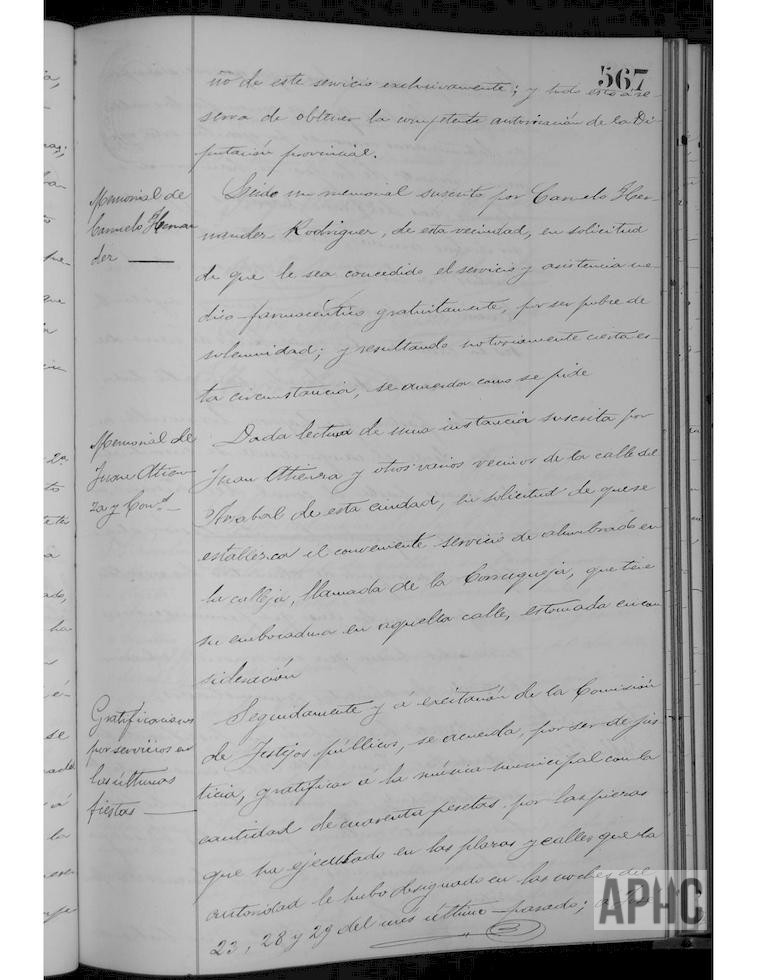 567
ño de este servicio exclusivamente; y todo esto á re-
serva de obtener la competente autorización de la Di-
putación provincial.
Memorial de
Canuelo Hernan
der
Leido un memorial suscrito por Canuelo Her-
nandez Rodriguez, de esta vecindad, en solicitud
de que le sea concedido el servicio y asistencia me-
dico-farmacéutico gratuitamente, por ser pobre de
solemnidad; y resultando notoriamente cierta es-
ta circunstancia, se acuerda como se pide
Memorial de
Juan Atien-
za y Con.s
Dada lectura de una instancia suscrita por
Juan Atienza y otros varios vecinos de la calle del
Arrabal de esta ciudad, en solicitud de que se
establezca el conveniente servicio de alumbrado en
la calleja, llamada de la que tiene
su embocadura en aquella calle, es tomada en con
sideración
Gratificaciones
por servicios en
las últimas
fiestas
Seguidamente y á excitación de la Comisión
de Festejos públicos, se acuerda, por ser de jus
ticia, gratificar á la música municipal con la
cantidad de cuarenta pesetas por las piezas
que ha ejecutado en las plazas y calles que la
autoridad le hubo designado en las noches del
23, 28 y 29 del mes último pasado;
APHC